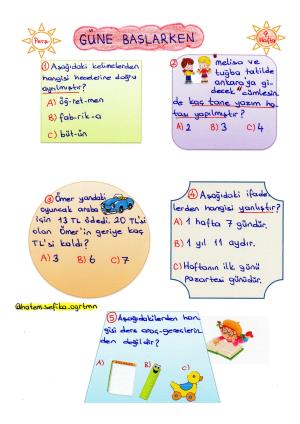 Perş.
GÜNE BASLARKEN
Hafta
① Aşağıdaki kelimelerden
hangisi hecelerine doğru
ayrılmıştır?
A) öğ-ret-men
B) fab-rik-a
C) büt-ün
② "melisa ve
tuğba tatilde
ankara'ya gi-
decek" cümlesin-
de kaç tane yazım ha-
tası yapılmıştır?
A) 2 B) 3 C) 4
③ Ömer yandaki
oyuncak araba
için 13 TL ödedi. 20 TL'si
olan Ömer'in geriye kaç
TL'si kaldı?
A) 3 B) 6 C) 7
④ Aşağıdaki ifade-
lerden hangisi yanlıştır?
A) 1 hafta 7 gündür.
B) 1 yıl 11 aydır.
C) Haftanın ilk günü
pazartesi günüdür.
@hatem.sefika_ogrtmn
⑤ Aşağıdakilerden han-
gisi ders araç-gereclerin-
den değildir?
A) B) C)